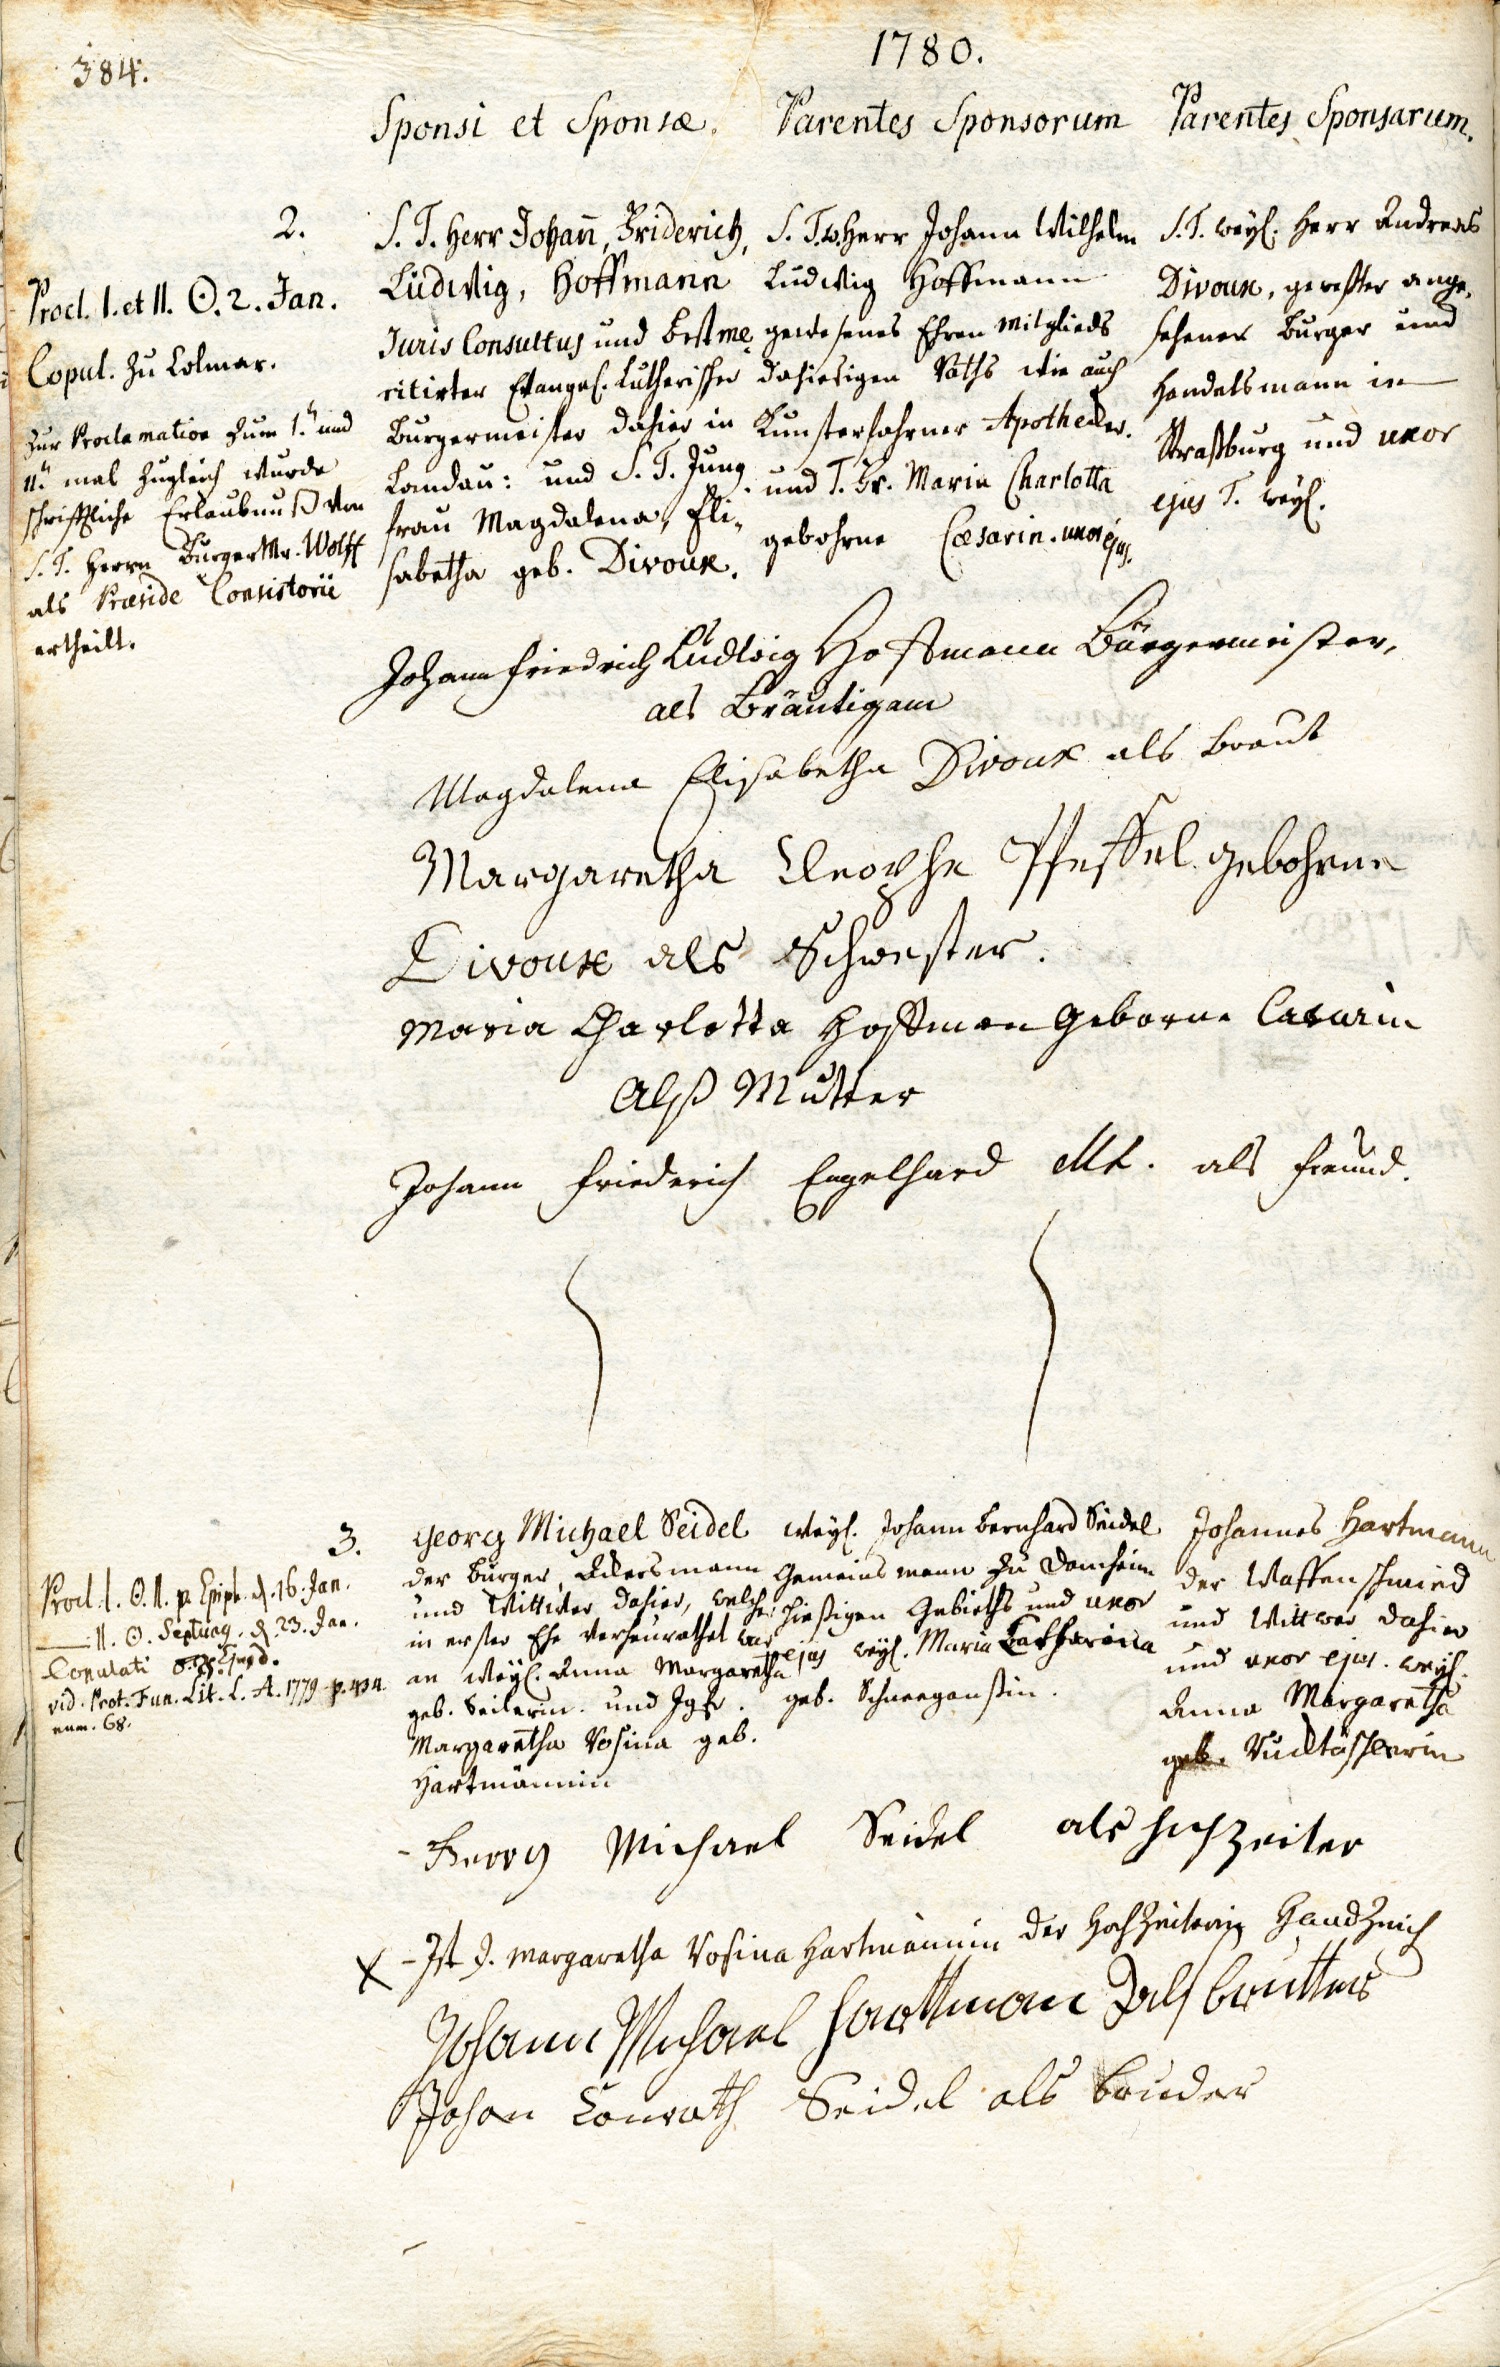 384.
1780.
Sponsi et Sponsæ. Parentes Sponsorum Parentes Sponsarum.
2.
Procl. I. et II. ☉. 2. Jan.
Copul. zu Colmar.
Zur Proclamation zum 1.ⁿ und
11.ⁿ mal zugleich wurde
schrifftliche Erlaubnuß von
S. T. Herrn BurgerMr. Wolff
als Præside Consistorii
ertheilt.
S. T. Herr Johañ, Friderich,
Ludwig, Hoffmann
Juris Consultus und bestme
ritirter Evangel. Lutherischer
Burgermeister dahier in
Landau: und S. T. Jung
frau Magdalena, Eli,
sabetha geb. Divoux.
S. T. w. Herr Johann Wilhelm
Ludwig Hoffmann
gewesenes Ehren Mitglieds
dahiesigen Raths wie auch
Kunsterfahrner Apothecker.
und T. Fr. Maria Charlotta
gebohrne Cæsarin. uxor ejus.
S. T. weyl. Herr Andreas
Divoux, gewester ange,
sehener Burger und
Handelsmann in
Straßburg und uxor
ejus T. weyl.
Johann Friedrich Ludwig Hoffmann Burgermeister,
als Bräutigam
Magdalena Elisabetha Divoux als Braut
Margaretha Cleophe Pfeffel gebohrne
Divoux als Schwester.
Maria Charlotta Hoffman Geborne Cæsarin
Alß Mutter
Johann Friederich Engelhard als Freund.
3.
Procl. I. ☉. II. p. Epiph. d. 16. Jan.
II. ☉. Septuag. d. 23. Jan.
Copulati ejusd.
vid. Prot. Fun. Lit. L. A. 1779. p. 434.
num. 68.
Georg Michael Seidel
der Burger, Ackersmann
und Wittwer dahier, welcher
in erster Ehe verheurathet war
an weyl. Anna Margaretha
geb. Seilerin. und Jgfr.
Margaretha Rosina geb.
Hartmännin
weyl. Johann Bernhard Seidel
Gemeinsmann zu Damheim
hießigen Gebieths und uxor
ejus weyl. Maria Catharina
geb. Schneeganßin.
Johannes Hartmann
der Waffenschmied
und Wittwer dahier
und uxor ejus. weyl.
Anna Margaretha
geb. Rucktäschlerin
Georg Michael Seidel als Hochzeiter
X - Ist J. Margaretha Rosina Hartmännin der Hochzeiterin Handzeich
Johann Michael Harttman als brutter
Johan Conrath Seidel als bruder